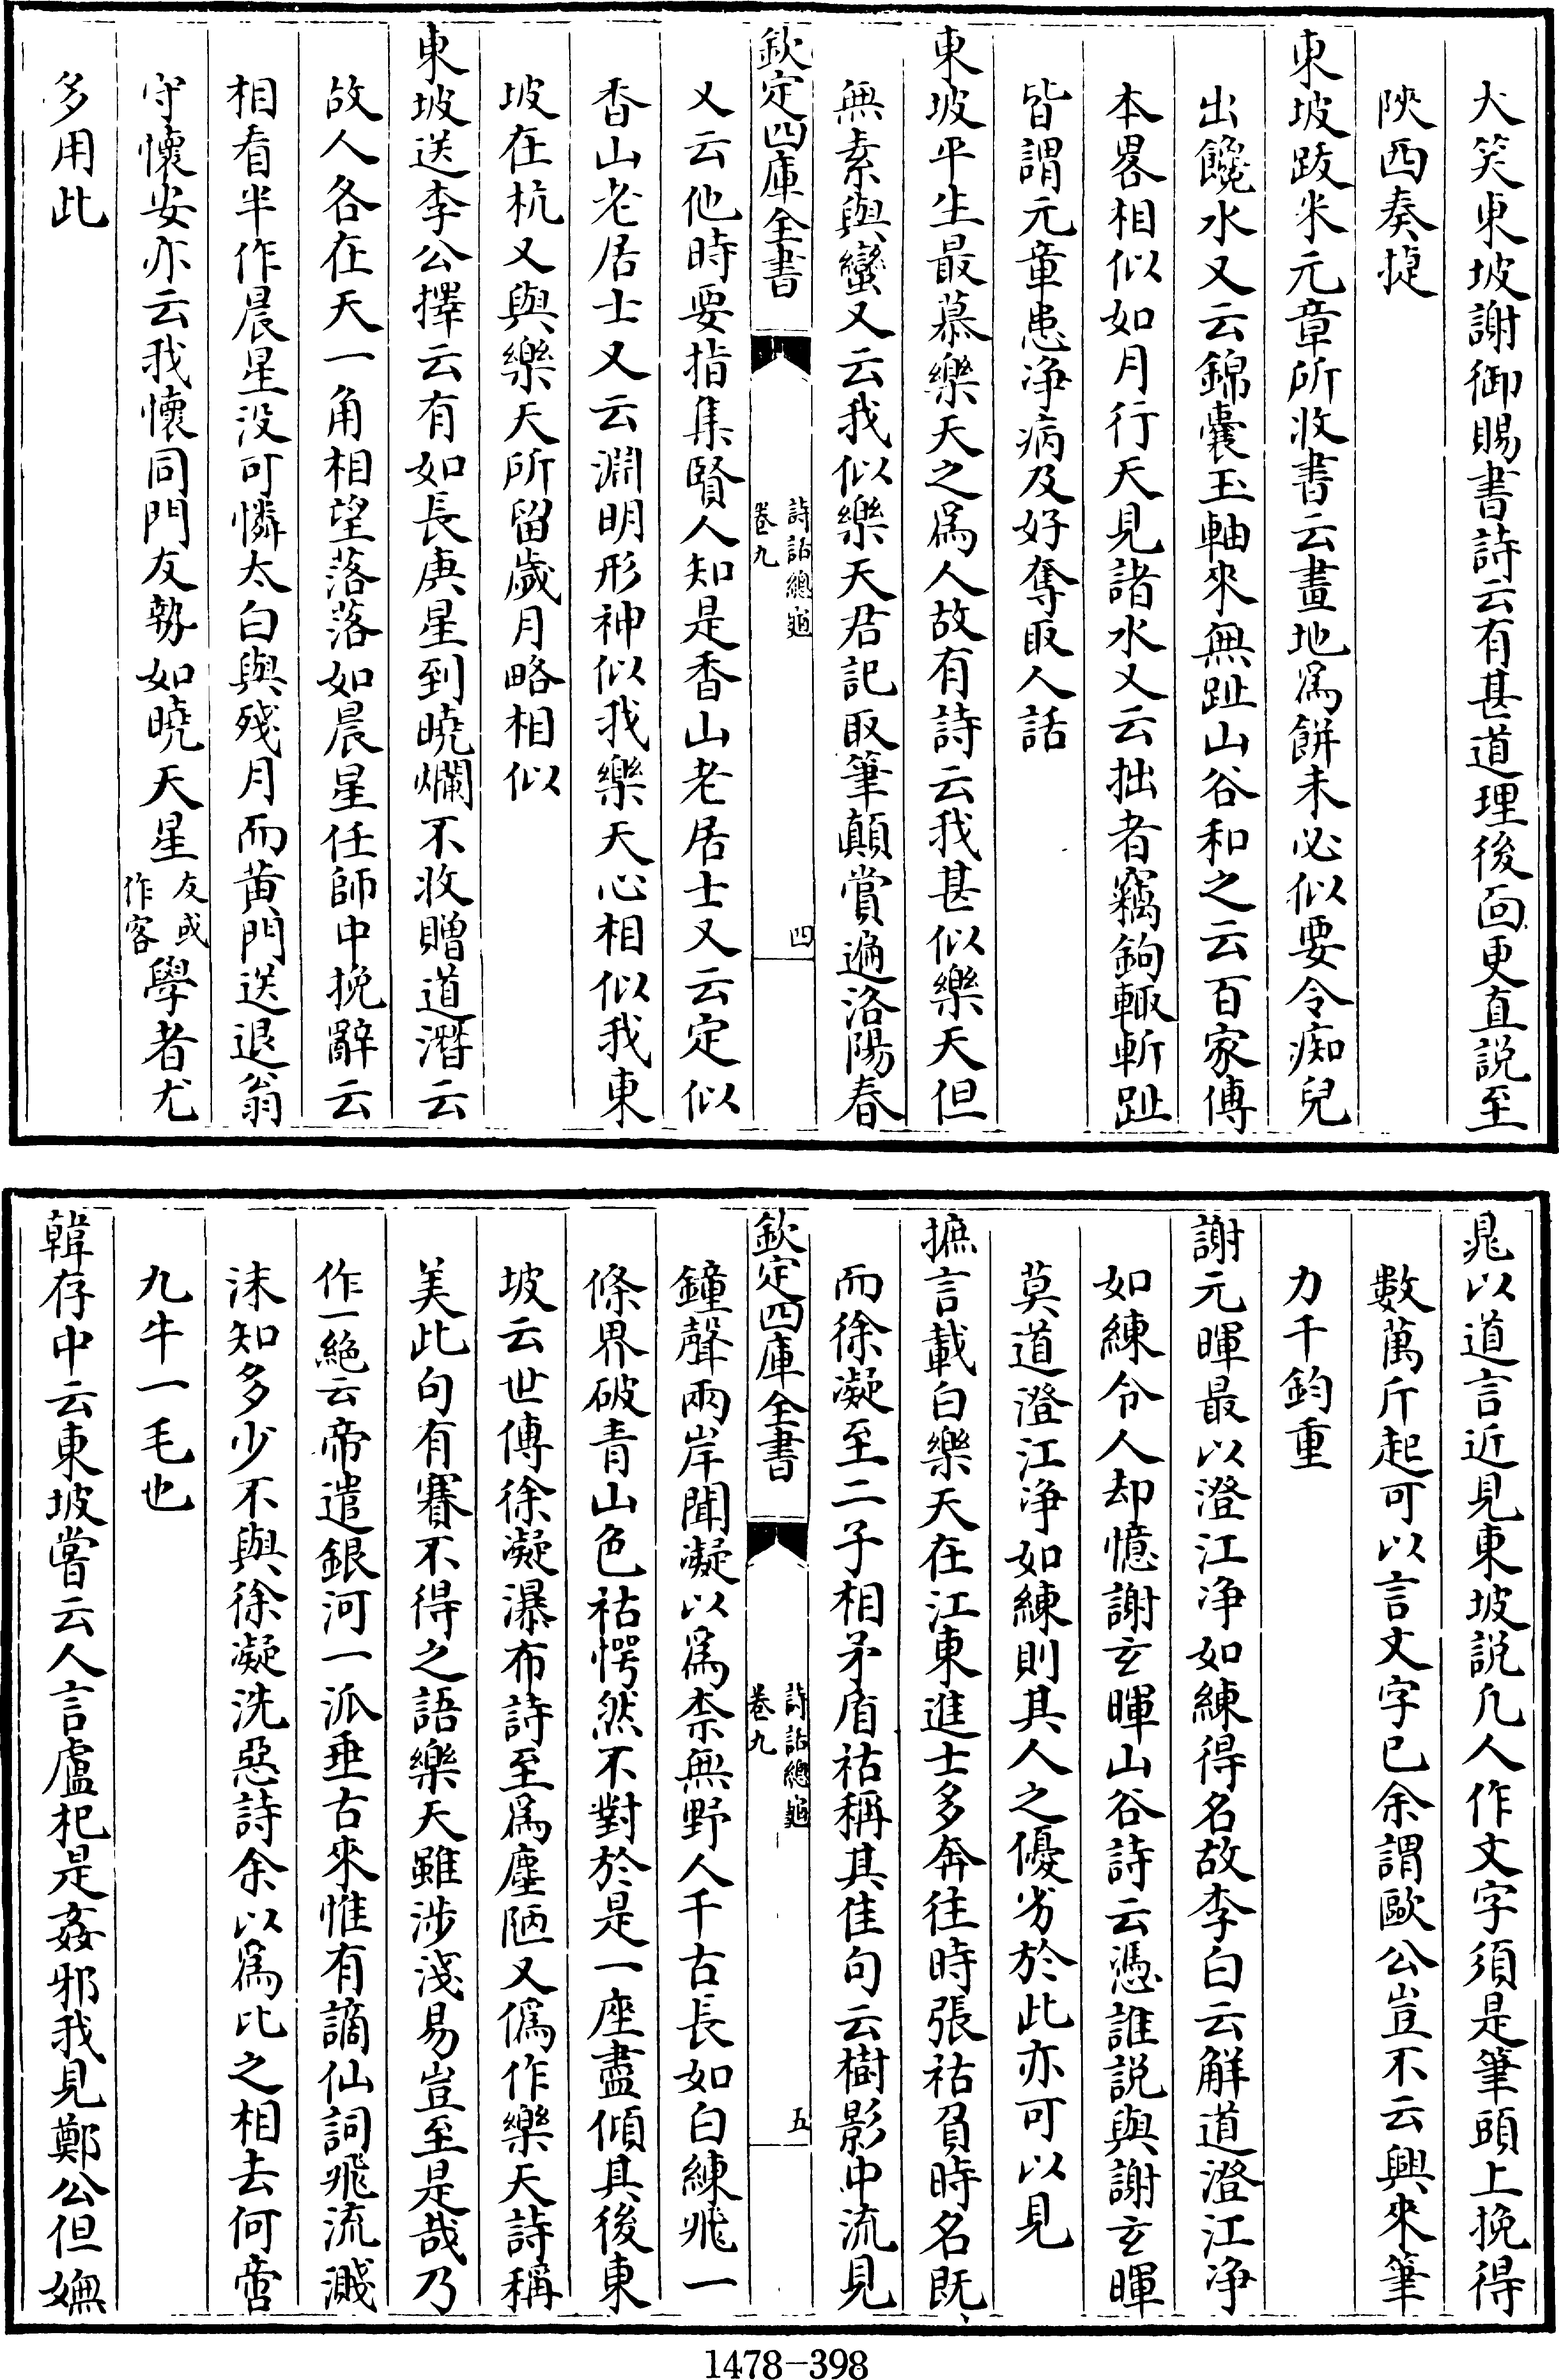 大笑東坡謝御賜書詩云有甚道理後面更直説至
陜西奏捷
東坡跋米元章所收書云畫地爲餅未必似要令痴兒
出饞水又云錦囊玉軸來無趾山谷和之云百家傳
本畧相似如月行天見諸水又云拙者竊鉤輒斬趾
皆謂元章患净病及好奪取人話
東坡平生最慕樂天之爲人故有詩云我甚似樂天但
無素與蠻又云我似樂天君記取筆顛賞遍洛陽春
欽定四庫全書
詩話總龜
卷九
四
又云他時要指集賢人知是香山老居士又云定似
香山老居士又云淵明形神似我樂天心相似我東
坡在杭又與樂天所留歲月略相似
東坡送李公擇云有如長庚星到曉爛不收贈道潛云
故人各在天一角相望落落如晨星任師中挽辭云
相看半作晨星没可憐太白與殘月而黄門送退翁
守懷安亦云我懷同門友勢如曉天星友或作客學者尤
多用此
晁以道言近見東坡説凡人作文字須是筆頭上挽得
數萬斤起可以言文字已余謂歐公豈不云興來筆
力千鈞重
謝元暉最以澄江净如練得名故李白云解道澄江净
如練令人却憶謝玄暉山谷詩云憑誰説與謝玄暉
莫道澄江净如練則其人之優劣於此亦可以見
摭言載白樂天在江東進士多奔往時張祜負時名既
而徐凝至二子相矛盾祜稱其佳句云樹影中流見
欽定四庫全書
詩話總龜
卷九
五
鐘聲兩岸聞凝以爲柰無野人千古長如白練飛一
條界破青山色祜愕然不對於是一座盡傾其後東
坡云世傳徐凝瀑布詩至爲塵陋又僞作樂天詩稱
美此句有賽不得之語樂天雖涉淺易豈至是哉乃
作一絶云帝遣銀河一派垂古來惟有謫仙詞飛流濺
沫知多少不與徐凝洗惡詩余以爲比之相去何啻
九牛一毛也
韓存中云東坡嘗云人言盧杞是姦邪我見鄭公但嫵
1478-398